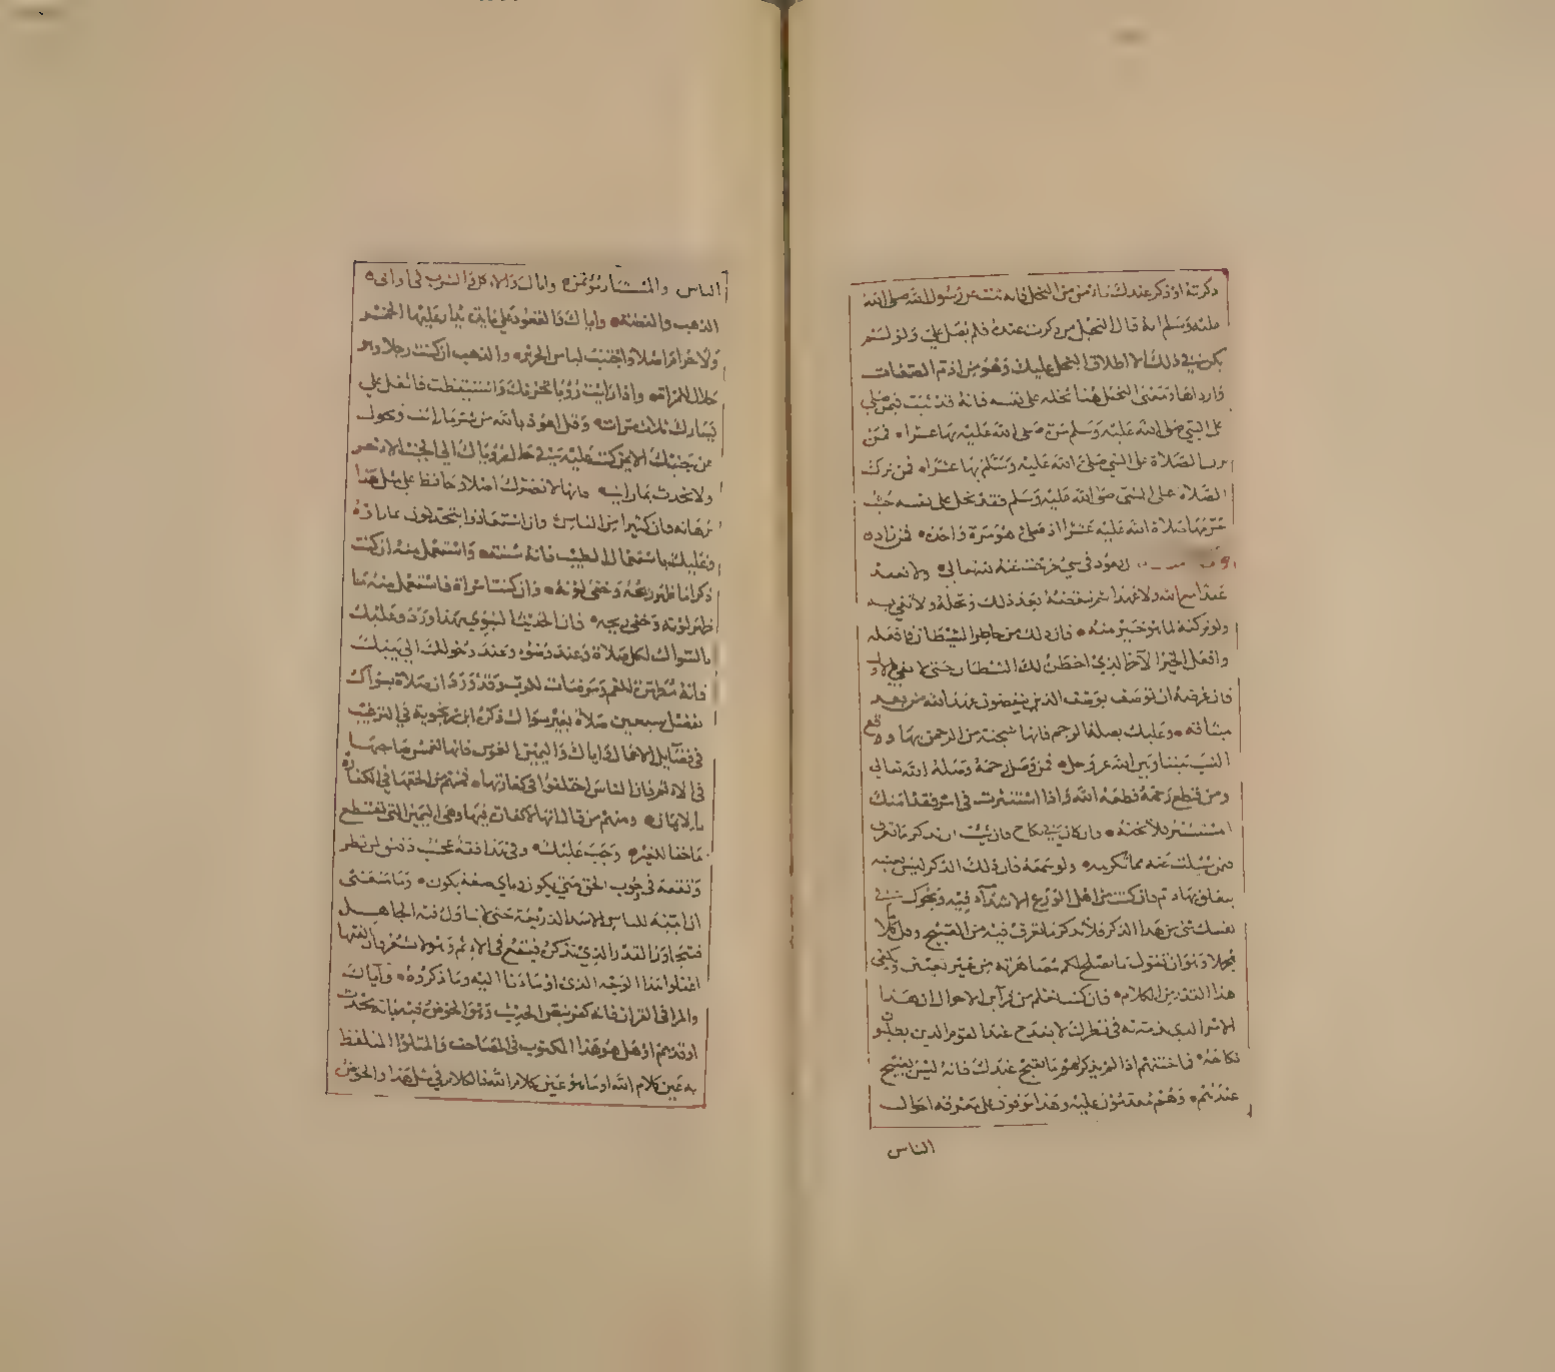 ذكرته او ذكر عندك
عليه وسلم انه قال البخيل من ذكرت عنده فلم يصل علي ولو لم
يكن في ذلك الا اطلاق البخل عليك وهو من اذم الصفات
ومعنى البخل هنا بخله على نفسه فانه قد ثبت فيمن صلى
على النبي صلى الله عليه وسلم مرة صلى الله عليه بها عشرا فمن
الصلاة على النبي صلى الله عليه وسلم بها عشرا فمن ترك
الصلاة على النبي صلى الله عليه وسلم فقد بخل على نفسه حيث
حرمها صلاة الله عليه عشرا اذ صلى هو مرة واحدة فمن زاد
تعود في شيء خرجت عنه لله تعالى ولا تعقد
عقدا مع الله ولا عهدا ثم تنقضه بعد ذلك وتحله ولا تفي به
ولو تركته لما هو خير منه فان ذلك من خاطر الشيطان فافعله
وافعل الخير الاخر الذي اخطر لك الشيطان حتى لا تفي بالاول
فان غرضه ان توصف بوصف الذين ينقضون عهد الله من بعد
ميثاقه وعليك بصلة الرحم فانها شجنة من الرحمن وبها وقع
النسب بيننا وبين الله عز وجل فمن وصل رحمه وصله الله تعالى
ومن قطع رحمه قطعه الله واذا استشرت في امر فقد امنك
المستشير فلا تخنه وان كان في نكاح فان شئت ان تذكر ما تعرف
فمن سئلت عنه مما يكرهه ولو سمعه فان ذلك الذكر ليس بغيبة
يتعلق بها ذم فان كنت من اهل الورع الاشداء فيه ويحوك في
نفسك شيء من هذا الذكر فلا تذكر ما تعرف فيه من القبيح وقل كلاما
مجملا وهو ان تقول ما تصلح لكم مصاهرته من غير تعيين ويكفي
هذا القدر من الكلام فان كنت تعلم من قرائن الاحوال ان هذا
الامر الذي ذممته في نظرك لا يقدح عند القوم الذين يطلبون
نكاحه فما خنتهم اذا لم تذكر لهم ما يقبح عندك فانه ليس بقبيح
عندهم وهم مقدمون عليه وهذا موقوف على معرفة احوال
الناس
الناس والمستشار مؤتمن واياك والاكل والشرب في اواني
الذهب والفضة واياك والقعود على مائدة يدار عليها الخمر
ولا حراما اصلا واجتنب لباس الحرير والذهب ان كنت رجلا وهو
حلال للمراة واذا رايت رؤيا تحزنك واستيقظت فاتفل على
يسارك ثلاث مرات وقل اعوذ بالله من شر ما رايت وتحول
من جنبك الايمن كنت عليه في حال رؤياك الى الجنب الاخر
ولا تحدث بما رايت فانها لا تضرك اصلا وحافظ على مثل هذا
فان كثيرا من الناس وان استعاذوا يتحدثون بما راوه
وعليك باستعمال الطيب فانه سنة واستعمل منه ان كنت
ذكرا ما ظهر ريحه وخفي لونه وان كنت امراة فاستعمل منه ما
ظهر لونه وخفي ريحه فان الحديث النبوي بهذا ورد وعليك
بالسواك لكل صلاة وعند وضوء وعند دخولك الى بيتك
فانه مطهرة للفم ومرضات للرب وقد ورد ان صلاة بسواك
تفضل سبعين صلاة بغير سواك ذكره ابن زنجويه في الترغيب
في فضايل الاعمال واياك واليمين الغموس فانها تغمس صاحبها
في الاثم فان الناس اختلفوا في كفارتها فمنهم من الحقها في الكفارة
بالايمان ومنهم من قال انها لا كفارة فيها وهي اليمين التي تقتطع بها
حقا للغير وجب عليك وفي هذا فقه عجيب دقيق لمن نظر
وتفقه في وجوب الحق متى يكون وباي صفة يكون وما منعني
ان ابينه للناس الا سد الذريعة حتى لا يتاول فيه الجاهل
فيتجاوز القدر الذي نذكره فيقع في الاثم وهو لا يشعر فان الفقهاء
اغفلوا هذا الوجه الذي اومأنا اليه وما ذكروه واياك
والمرا في القران فانه كفر بنص الحديث وهو الخوض فيه بانه محدث
او قديم او هل هو هذا المكتوب في المصاحف والمتلو المتلفظ
به عين كلام الله او ما هو عين كلام الله فالكلام في مثل هذا والخوض